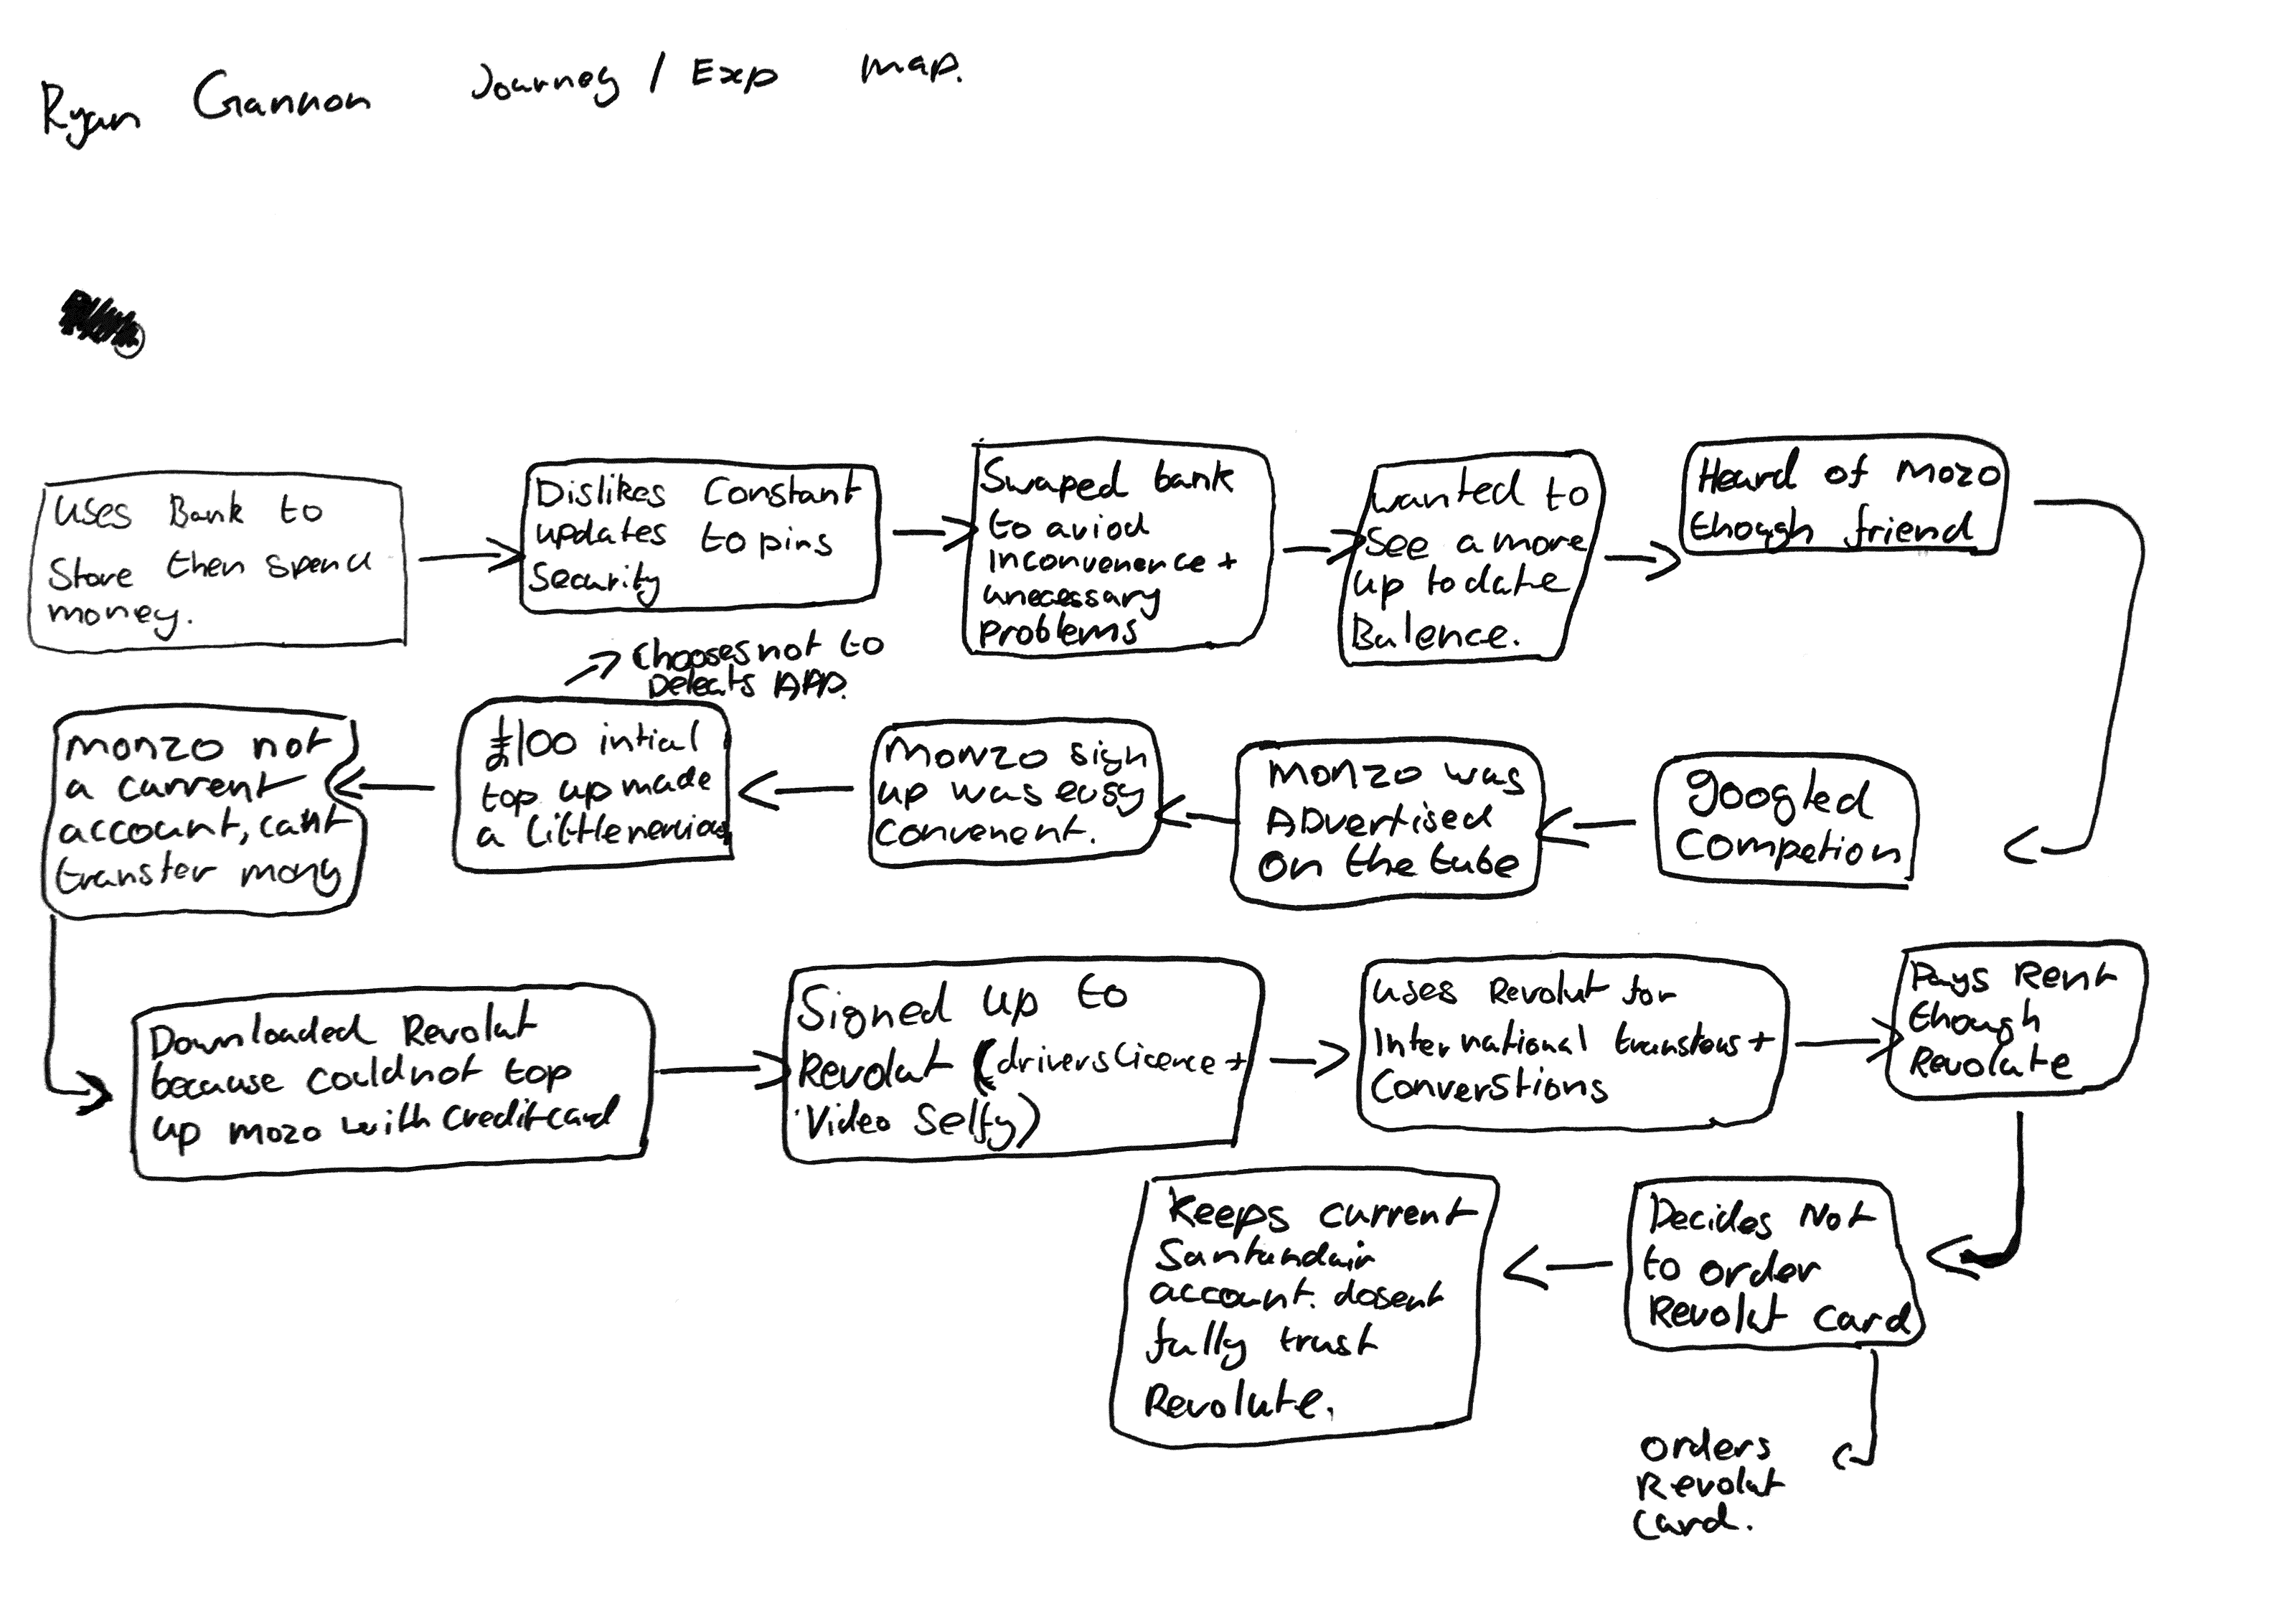 Ryan Gannon Journey / Exp map.
Uses Bank to
Store then spend
money.
Dislikes Constant
updates to pins
Security
Swaped bank
to aviod
Inconvenence +
unecessary
problems
wanted to
See a more
up to date
Balence.
Heard of Mozo
though friend
googled
Competion
Monzo was
ADvertised
on the tube
Monzo sign
up was easy
convenent.
£100 intial
top up made
a little nervious
Chooses not to
Delects APP.
Monzo not
a current
account, cant
transfer mony
Downloaded Revolut
because could not top
up mozo with credit card
Signed up to
Revolut (drivers licence +
Video Selfy)
uses Revolut for
International transfous +
Converstions
Pays Rent
though
Revolate
Decides Not
to order
Revolut card
orders
Revolut
card.
Keeps current
Santandair
account. dosent
fully trust
Revolute.